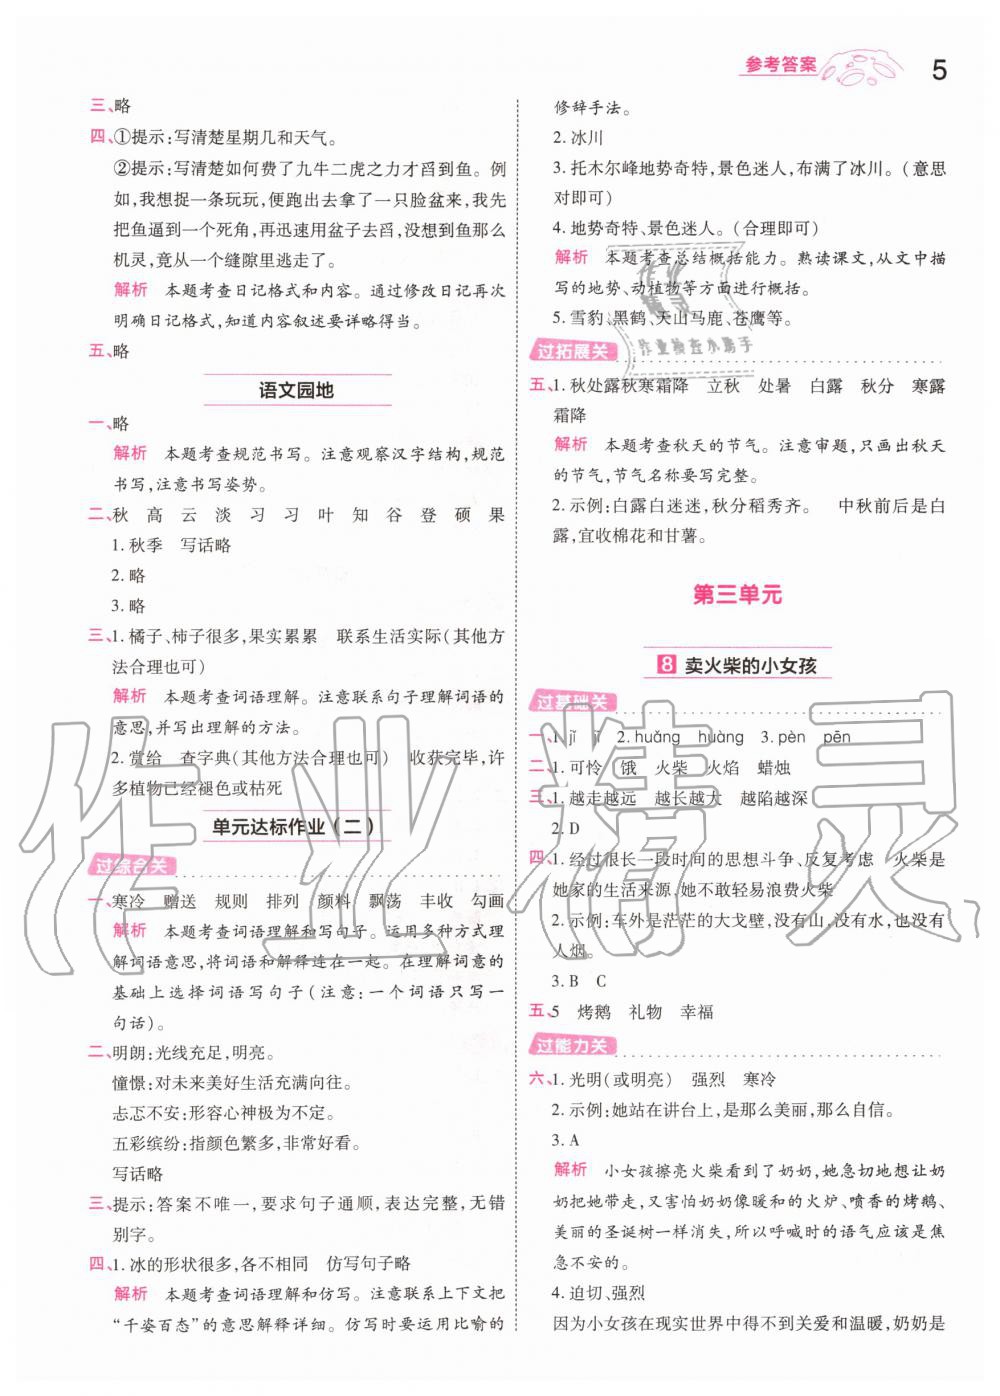 参考答案 5
三、略
四、①提示:写清楚星期几和天气。
②提示:写清楚如何费了九牛二虎之力才舀到鱼。例
如,我想捉一条玩玩,便跑出去拿了一只脸盆来,我先
把鱼逼到一个死角,再迅速用盆子去舀,没想到鱼那么
机灵,竟从一个缝隙里逃走了。
解析 本题考查日记格式和内容。通过修改日记再次
明确日记格式,知道内容叙述要详略得当。
五、略
语文园地
一、略
解析 本题考查规范书写。注意观察汉字结构,规范
书写,注意书写姿势。
二、秋 高 云 淡 习 习 叶 知 谷 登 硕 果
1. 秋季 写话略
2. 略
3. 略
三、1. 橘子、柿子很多,果实累累 联系生活实际(其他方
法合理也可)
解析 本题考查词语理解。注意联系句子理解词语的
意思,并写出理解的方法。
2. 赏给 查字典(其他方法合理也可) 收获完毕,许
多植物已经褪色或枯死
单元达标作业(二)
过综合关
一、寒冷 赠送 规则 排列 颜料 飘荡 丰收 勾画
解析 本题考查词语理解和写句子。运用多种方式理
解词语意思,将词语和解释连在一起。在理解词意的
基础上选择词语写句子(注意:一个词语只写一
句话)。
二、明朗:光线充足,明亮。
憧憬:对未来美好生活的期待与向往。
忐忑不安:形容心神极为不定。
五彩缤纷:指颜色繁多,非常好看。
写话略
三、提示:答案不唯一,要求句子通顺,表达完整,无错
别字。
四、1. 冰的形状很多,各不相同 仿写句子略
解析 本题考查词语理解和仿写。注意联系上下文把
“千姿百态”的意思解释详细。仿写时要运用比喻的
修辞手法。
2. 冰川
3. 托木尔峰地势奇特,景色迷人,布满了冰川。(意思
对即可)
4. 地势奇特、景色迷人。(合理即可)
解析 本题考查总结概括能力。熟读课文,从文中描
写的地势、动植物等方面进行概括。
5. 雪豹、黑鹤、天山马鹿、苍鹰等。
过拓展关
五、1. 秋处露秋寒霜降 立秋 处暑 白露 秋分 寒露
霜降
解析 本题考查秋天的节气。注意审题,只画出秋天
的节气,节气名称要写完整。
2. 示例:白露白迷迷,秋分稻秀齐。 中秋前后是白
露,宜收棉花和甘薯。
第三单元
8 卖火柴的小女孩
过基础关
二、1. 可怜 饿 火柴 火焰 蜡烛
三、1. 越走越远 越长越大 越陷越深
2. D
四、1. 经过很长一段时间的思想斗争、反复考虑 火柴是
她家的生活来源,她不敢轻易浪费火柴
2. 示例:车外是茫茫的大戈壁,没有山,没有水,也没有
人烟。
3. B C
五、5 烤鹅 礼物 幸福
过能力关
六、1. 光明(或明亮) 强烈 寒冷
2. 示例:她站在讲台上,是那么美丽,那么自信。
3. A
解析 小女孩擦亮火柴看到了奶奶,她急切地想让奶
奶把她带走,又害怕奶奶像暖和的火炉、喷香的烤鹅、
美丽的圣诞树一样消失,所以呼喊时的语气应该是焦
急不安的。
4. 迫切、强烈
因为小女孩在现实世界中得不到关爱和温暖,奶奶是
作业精灵